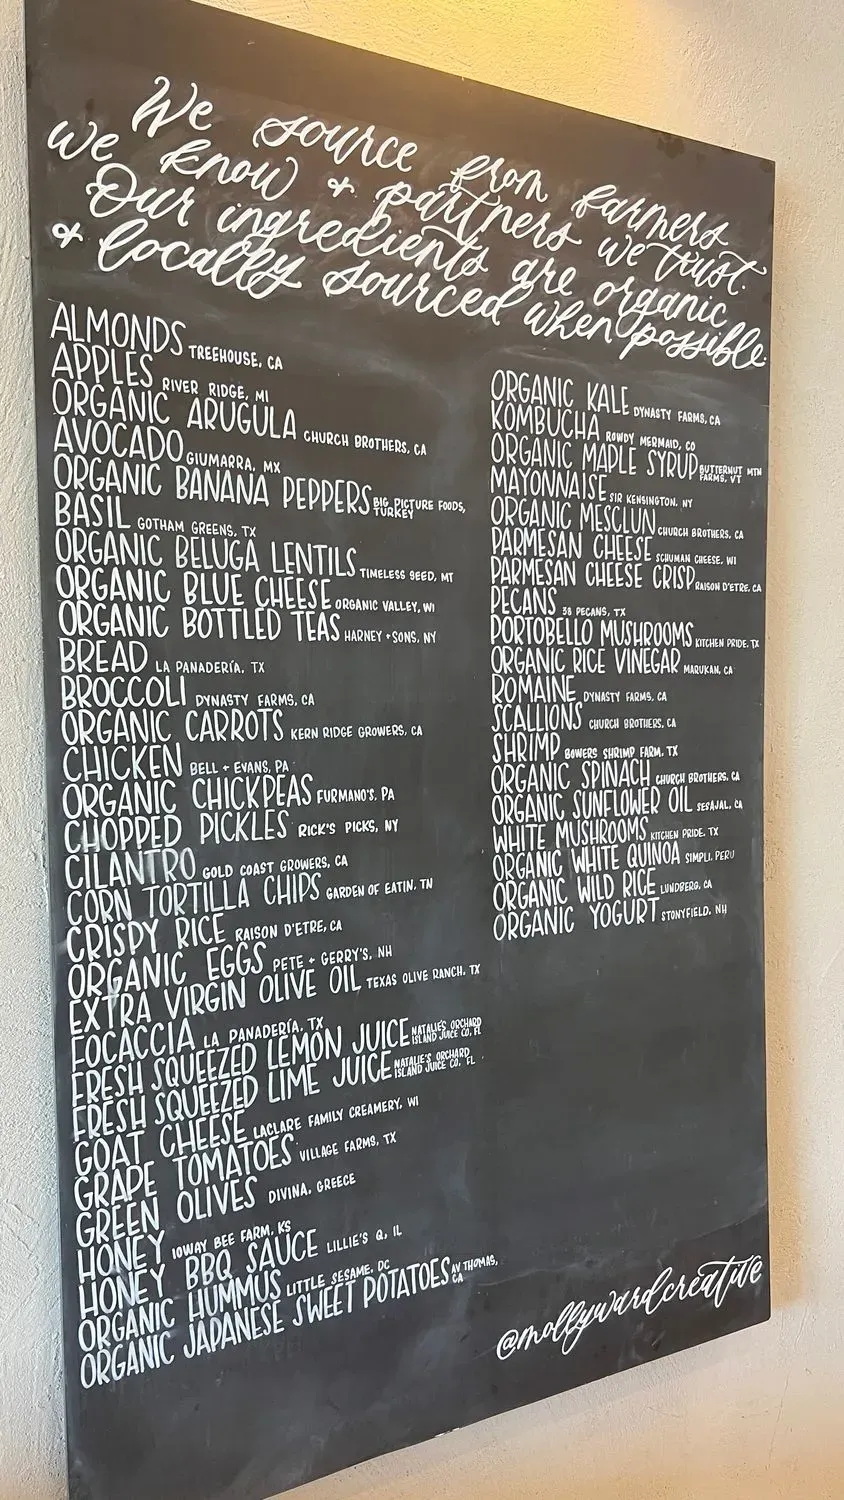 We source from farmers
we know & partners we trust.
Our ingredients are organic
& locally sourced when possible.
ALMONDS TREEHOUSE, CA
APPLES RIVER RIDGE, MI
ORGANIC ARUGULA CHURCH BROTHERS, CA
AVOCADO GIUMARRA, MX
ORGANIC BANANA PEPPERS BIG PICTURE FOODS, TURKEY
BASIL GOTHAM GREENS, TX
ORGANIC BELUGA LENTILS TIMELESS SEED, MT
ORGANIC BLUE CHEESE ORGANIC VALLEY, WI
ORGANIC BOTTLED TEAS HARNEY + SONS, NY
BREAD LA PANADERÍA, TX
BROCCOLI DYNASTY FARMS, CA
ORGANIC CARROTS KERN RIDGE GROWERS, CA
CHICKEN BELL + EVANS, PA
ORGANIC CHICKPEAS FURMANO'S, PA
CHOPPED PICKLES RICK'S PICKS, NY
CILANTRO GOLD COAST GROWERS, CA
CORN TORTILLA CHIPS GARDEN OF EATIN, TN
CRISPY RICE RAISON D'ETRE, CA
ORGANIC EGGS PETE + GERRY'S, NH
EXTRA VIRGIN OLIVE OIL TEXAS OLIVE RANCH, TX
FOCACCIA LA PANADERÍA, TX
FRESH SQUEEZED LEMON JUICE NATALIE'S ORCHARD ISLAND JUICE CO, FL
FRESH SQUEEZED LIME JUICE NATALIE'S ORCHARD ISLAND JUICE CO, FL
GOAT CHEESE LACLARE FAMILY CREAMERY, WI
GRAPE TOMATOES VILLAGE FARMS, TX
GREEN OLIVES DIVINA, GREECE
HONEY IOWAY BEE FARM, KS
HONEY BBQ SAUCE LILLIE'S Q, IL
ORGANIC HUMMUS LITTLE SESAME, DC
ORGANIC JAPANESE SWEET POTATOES AV THOMAS, CA
ORGANIC KALE DYNASTY FARMS, CA
KOMBUCHA ROWDY MERMAID, CO
ORGANIC MAPLE SYRUP BUTTERNUT MTN FARMS, VT
MAYONNAISE SIR KENSINGTON, NY
ORGANIC MESCLUN CHURCH BROTHERS, CA
PARMESAN CHEESE SCHUMAN CHEESE, WI
PARMESAN CHEESE CRISP RAISON D'ETRE, CA
PECANS 38 PECANS, TX
PORTOBELLO MUSHROOMS KITCHEN PRIDE, TX
ORGANIC RICE VINEGAR MARUKAN, CA
ROMAINE DYNASTY FARMS, CA
SCALLIONS CHURCH BROTHERS, CA
SHRIMP BOWERS SHRIMP FARM, TX
ORGANIC SPINACH CHURCH BROTHERS, CA
ORGANIC SUNFLOWER OIL SESAJAL, CA
WHITE MUSHROOMS KITCHEN PRIDE, TX
ORGANIC WHITE QUINOA SIMPLI, PERU
ORGANIC WILD RICE LUNDBERG, CA
ORGANIC YOGURT STONYFIELD, NH
@mollywardcreative